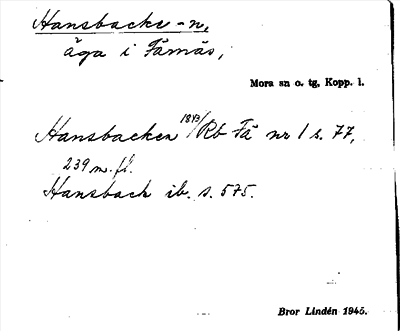 Hansbacke -n,
äga i Färnäs,
Mora sn o. tg, Kopp. l.
Hansbacken 1843/Rb Fä nr 1 s. 77,
239 m. fl.
Hansback ib. s. 575.
Bror Lindén 1945.